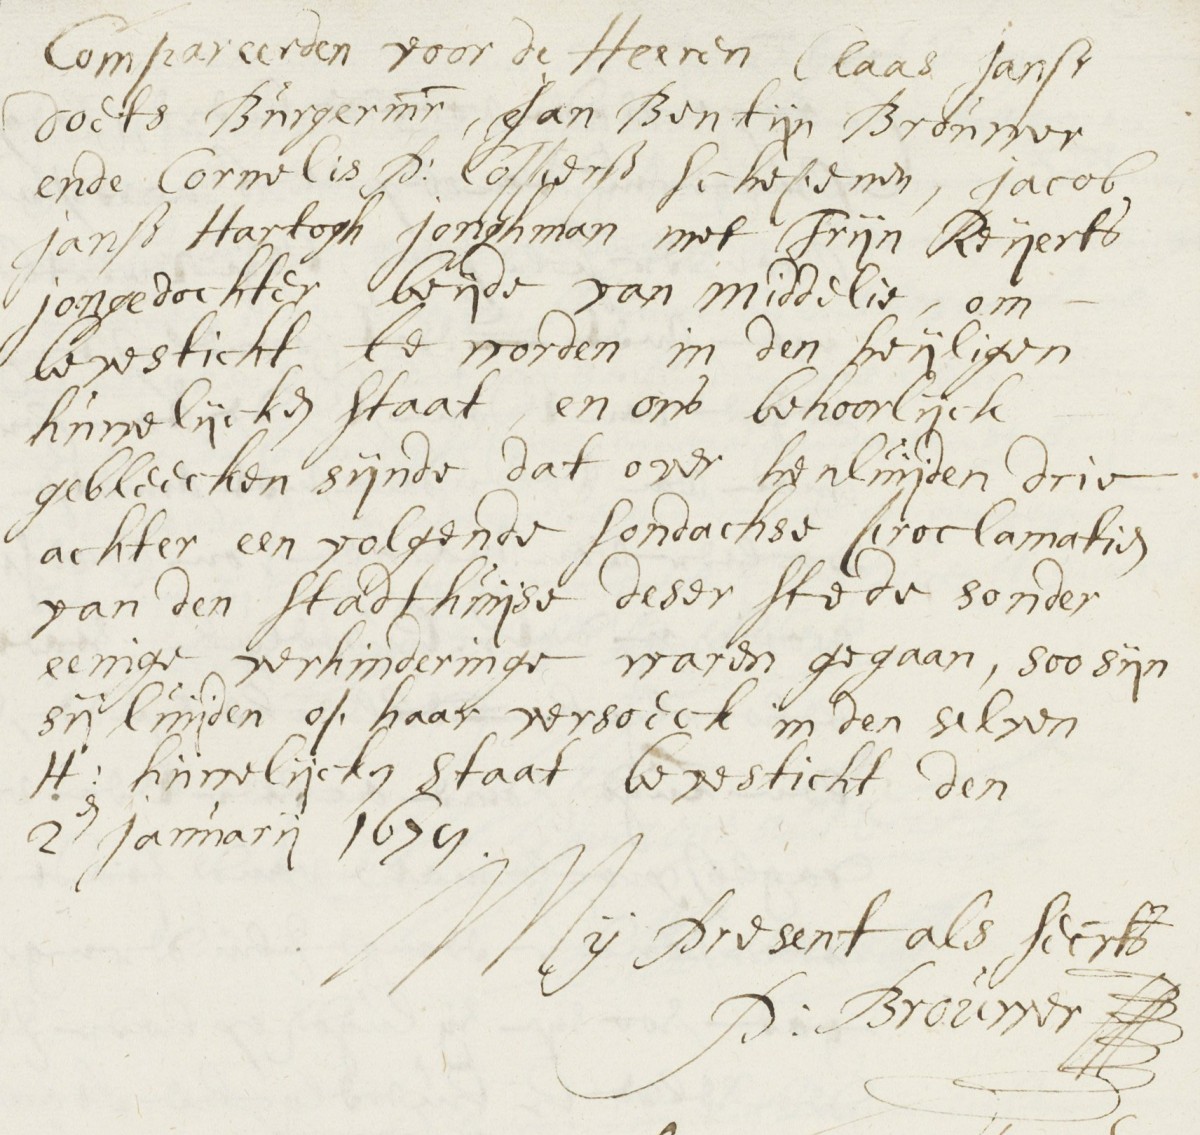 Compareerden voor de Heeren Claas Jansz
Doets Burgermr, Jan Bentijn Brouwer
ende Cornelis P: Cossersz schepenen, Jacob
Jansz Hartogh jonghman met Trijn Reijerts
jongedochter beijde van Middelie, om
bevesticht te worden in den heijligen
huwelijcken staat, en ons behoorlijck
gebleecken sijnde dat over henluijden drie
achter een volgende sondachse proclamatien
van den stadthuijse deser stede sonder
eenige verhinderinge waren gegaan, soo sijn
sij luijden op haar versoeck in den selven
H: huwelijcken staat bevesticht den
2en januarij 1679.
Mij Present als Secrts
P: Brouwer